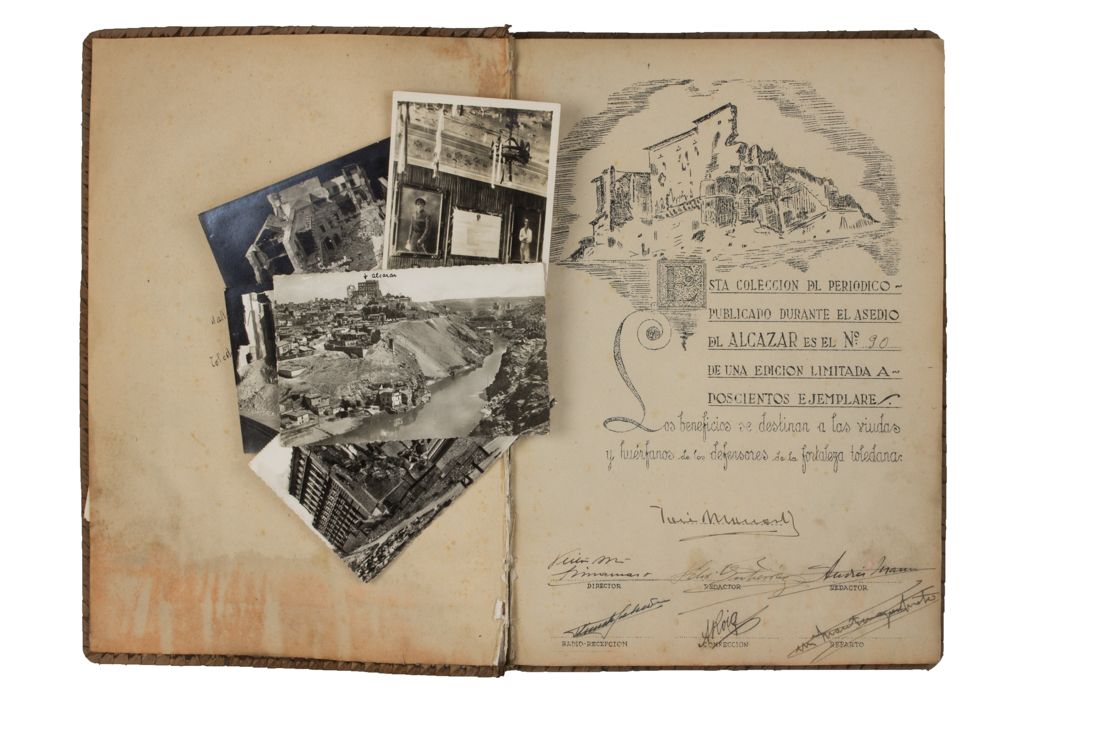 Alcazar
ESTA COLECCION DL PERIODICO~
PUBLICADO DURANTE EL ASEDIO
DL ALCAZAR ES EL Nº 90
DE UNA EDICION LIMITADA A~
DOSCIENTOS EJEMPLARES
Los beneficios se destinan a las viudas
y huérfanos de los defensores de la fortaleza toledana:
DIRECTOR
REDACTOR
REDACTOR
A Roig
RADIO-RECEPCION
CONFECCION
REPARTO